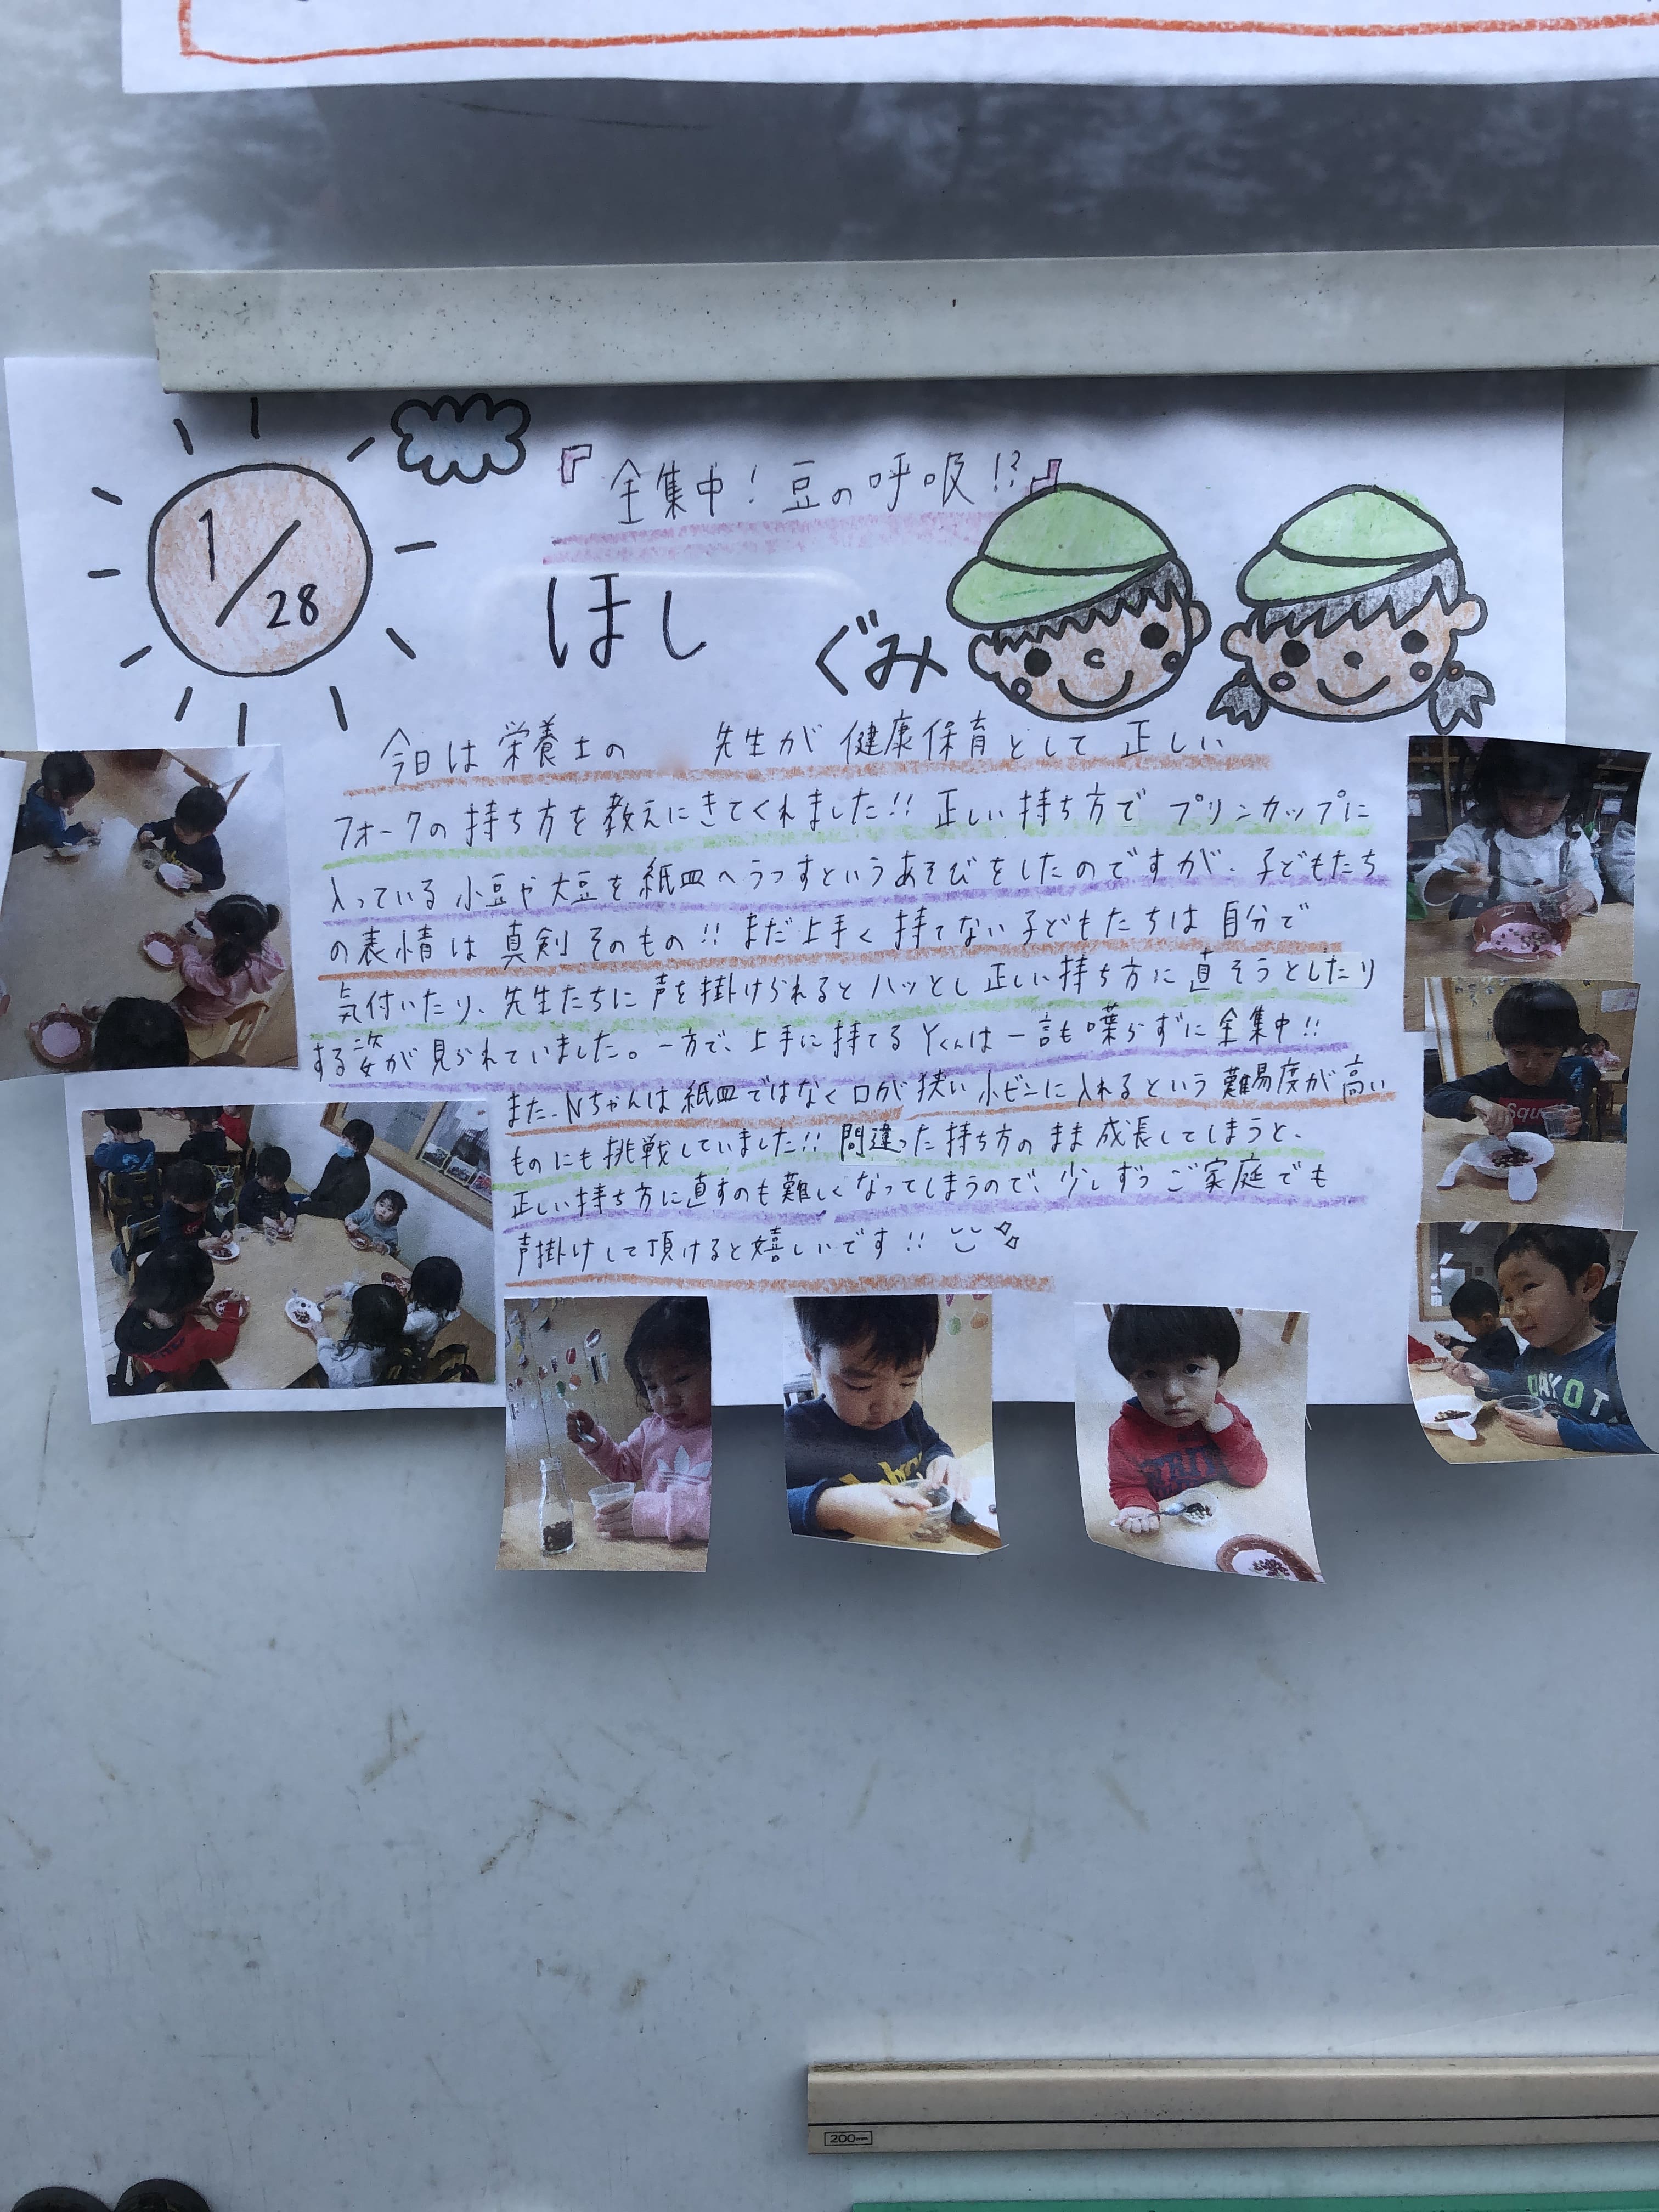 『全集中！豆の呼吸!?』
1/28
ほし ぐみ
今日は栄養士の 先生が健康保育として正しい
フォークの持ち方を教えにきてくれました!! 正しい持ち方でプリンカップに
入っている小豆や大豆を紙皿へうつすというあそびをしたのですが、子どもたち
の表情は真剣そのもの!! まだ上手く持てない子どもたちは自分で
気付いたり、先生たちに声を掛けられるとハッとし正しい持ち方に直そうとしたり
する姿が見られていました。一方で、上手に持てるYくんは一言も喋らずに全集中!!
また、Nちゃんは紙皿ではなく口が狭い小ビンに入れるという難易度が高い
ものにも挑戦していました!! 間違った持ち方のまま成長してしまうと、
正しい持ち方に直すのも難しくなってしまうので、少しずつご家庭でも
声掛けして頂けると嬉しいです!!
200mm